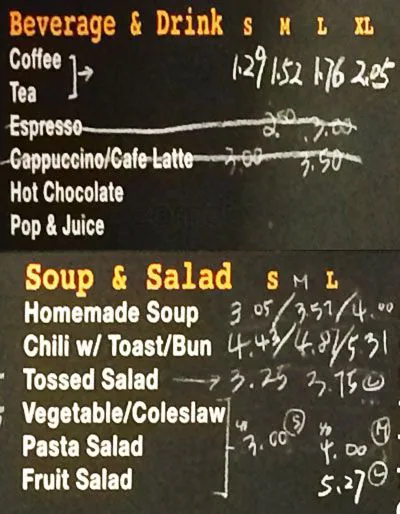 Beverage & Drink S M L XL
Coffee
Tea
1.29 1.52 1.76 2.05
Espresso 2.50 3.00
Cappuccino/Cafe Latte 3.00 3.50
Hot Chocolate
Pop & Juice
Soup & Salad S M L
Homemade Soup 3.05/3.57/4.00
Chili w/ Toast/Bun 4.43/4.87/5.31
Tossed Salad 3.25 3.75 L
Vegetable/Coleslaw
Pasta Salad 3.00 S 4.00 M
Fruit Salad 5.27 L